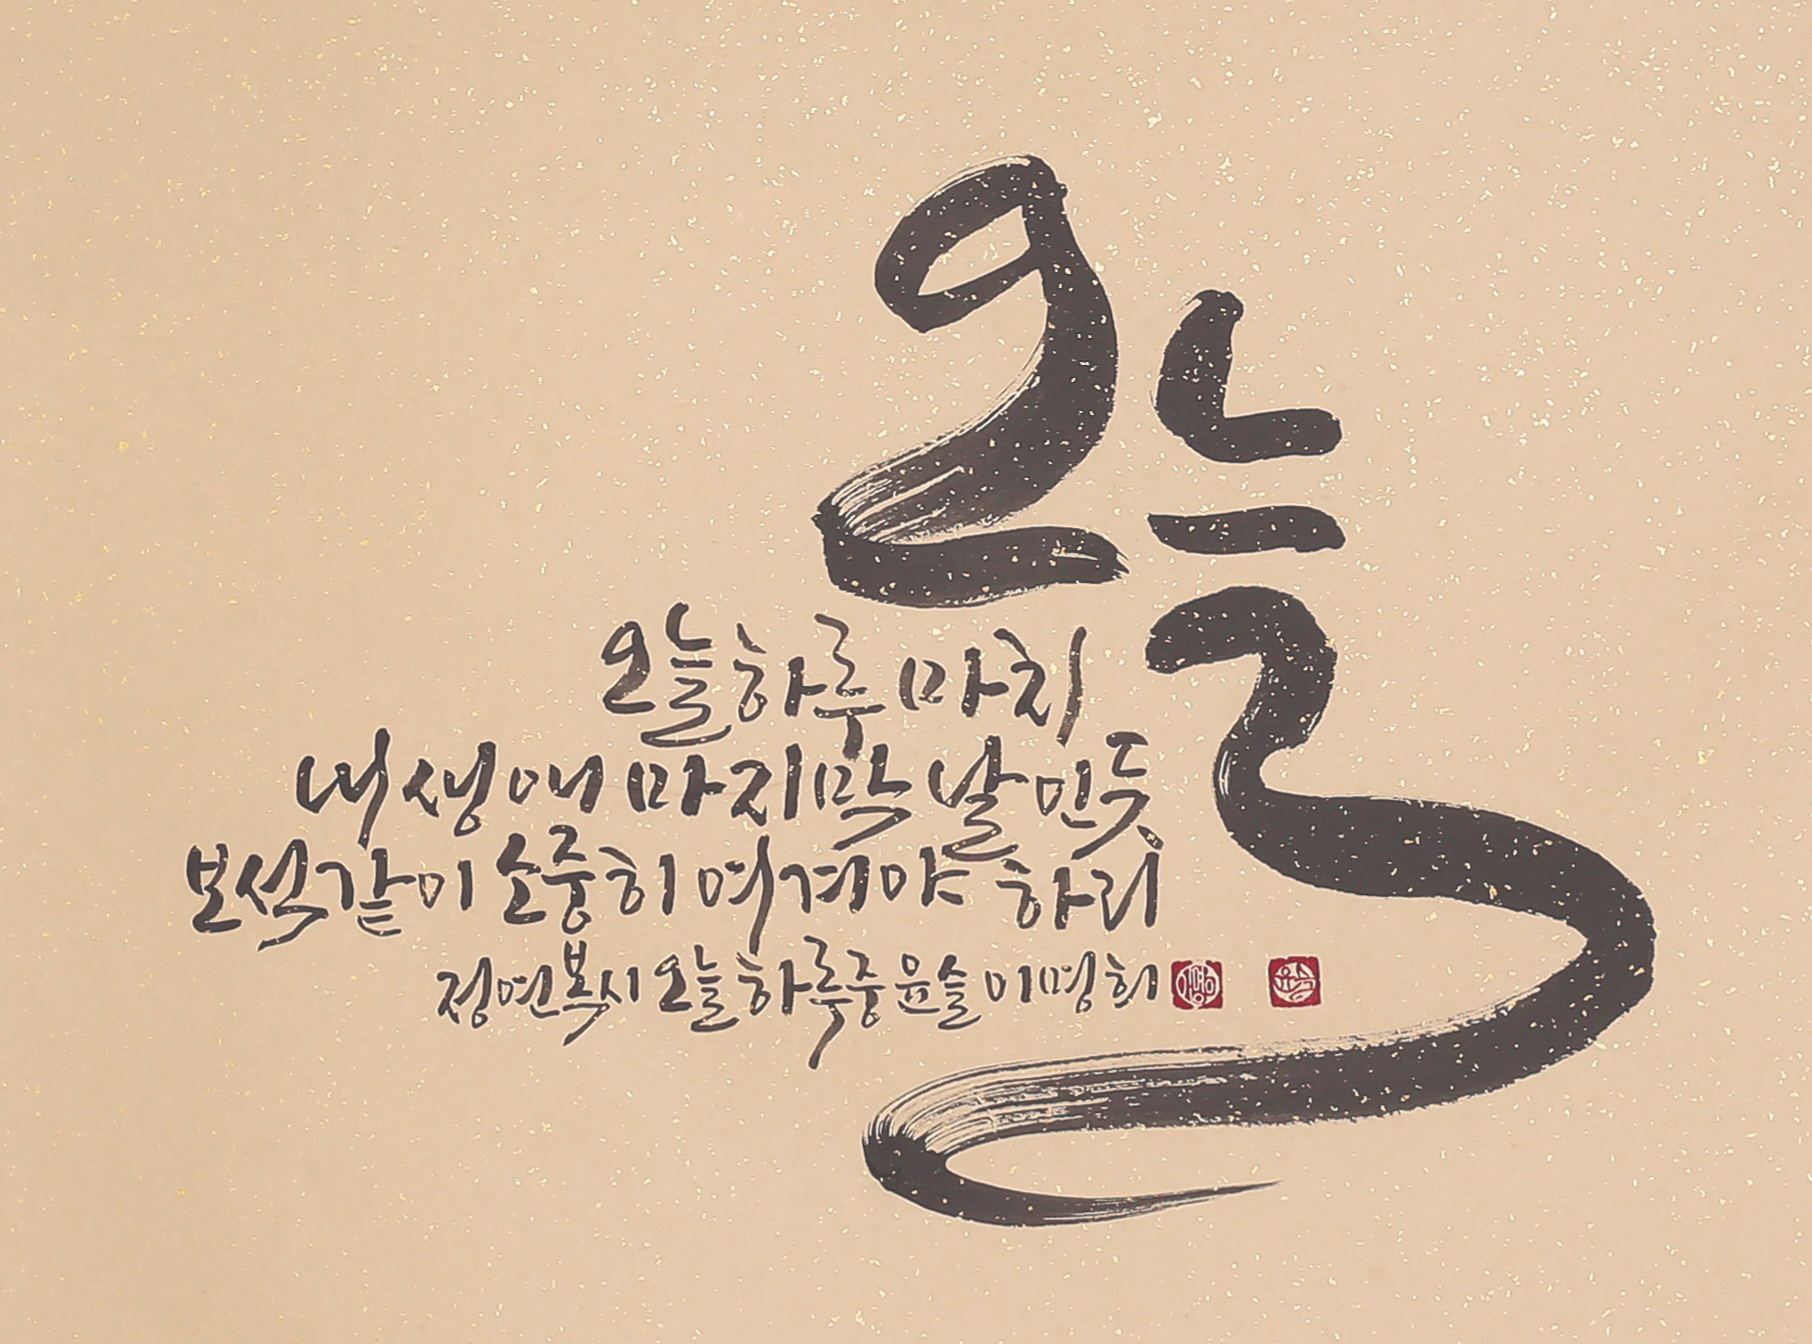 오늘
오늘 하루 마치
내 생애 마지막 날인 듯
보석같이 소중히 여겨야 하리
정연복 시 오늘 하루 중 윤슬 이명희